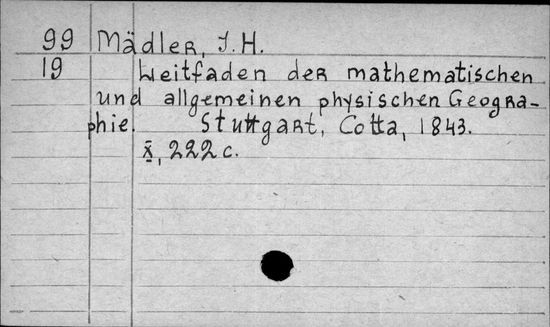 99 Mädler, J. H.
19 Leitfaden der mathematischen
und allgemeinen physischen Geogra-
phie. Stuttgart, Cotta, 1843.
X, 222 c.